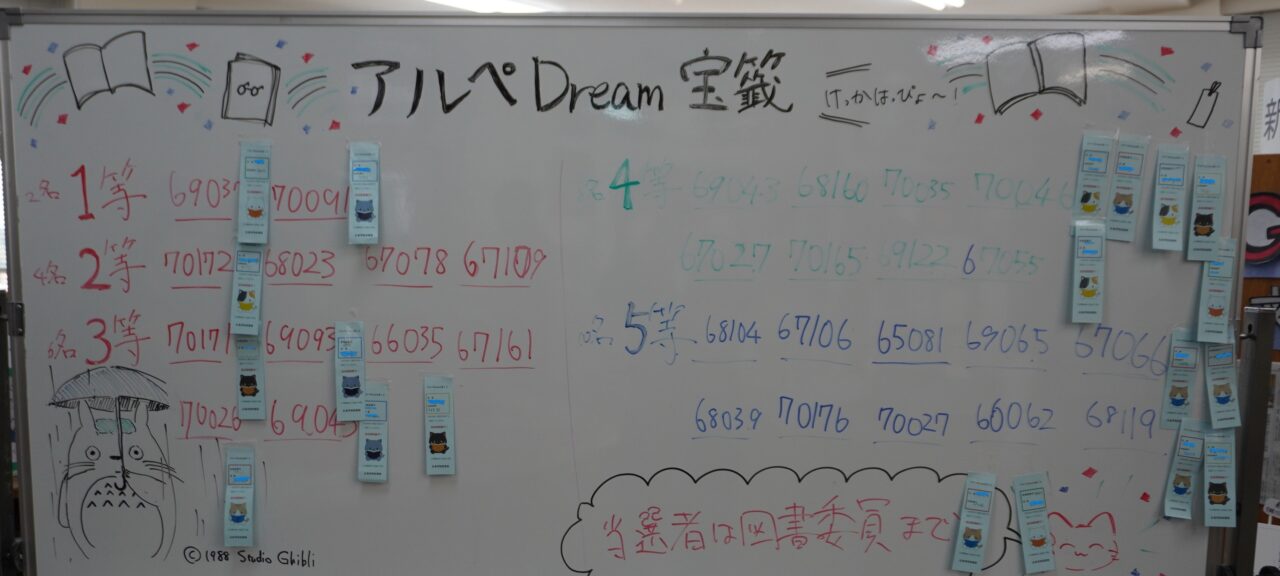 アルペDream宝籤 けっかはっぴょ〜!
2名 1等 69037 70091
4名 2等 70172 68023 67078 67109
6名 3等 70171 69093 66035 67161
70026 6904
4等 69043 68160 70035 70046
67027 70165 69122 67055
5等 68104 67106 65081 69065 67066
68039 70176 70027 66062 68119
当選者は図書委員まで
©1988 Studio Ghibli
新
G